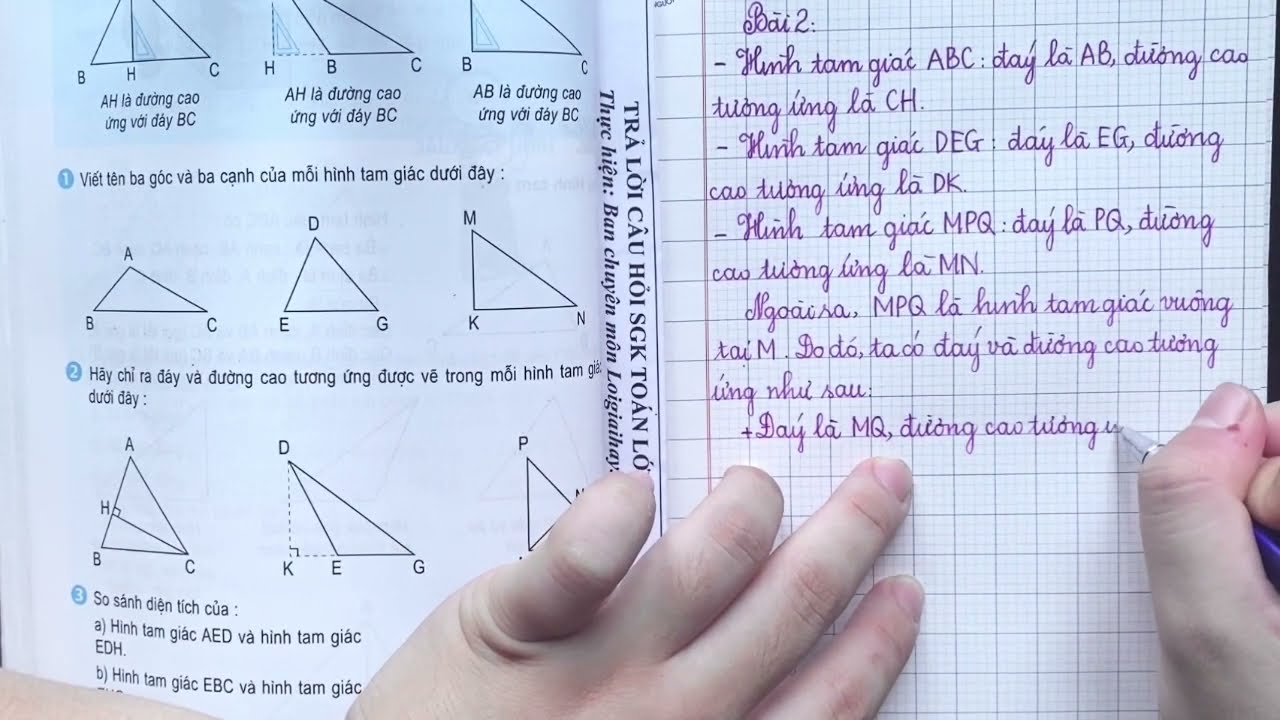 B H C
H B C
B C
AH là đường cao
ứng với đáy BC
AH là đường cao
ứng với đáy BC
AB là đường cao
ứng với đáy BC
1 Viết tên ba góc và ba cạnh của mỗi hình tam giác dưới đây :
A
B C
D
E G
M
K N
2 Hãy chỉ ra đáy và đường cao tương ứng được vẽ trong mỗi hình tam
dưới đây :
A
H
B C
D
K E G
P
3 So sánh diện tích của :
a) Hình tam giác AED và hình tam giác
EDH.
b) Hình tam giác EBC và hình tam giác
TRẢ LỜI CÂU HỎI SGK TOÁN
Thực hiện: Ban chuyên môn Loigiaihay.
Bài 2:
- Hình tam giác ABC : đáy là AB, đường cao
tương ứng là CH.
- Hình tam giác DEG : đáy là EG, đường
cao tương ứng là DK.
- Hình tam giác MPQ : đáy là PQ, đường
cao tương ứng là MN.
Ngoài ra, MPQ là hình tam giác vuông
tại M. Do đó, ta có đáy và đường cao tương
ứng như sau:
+ Đáy là MQ, đường cao tương